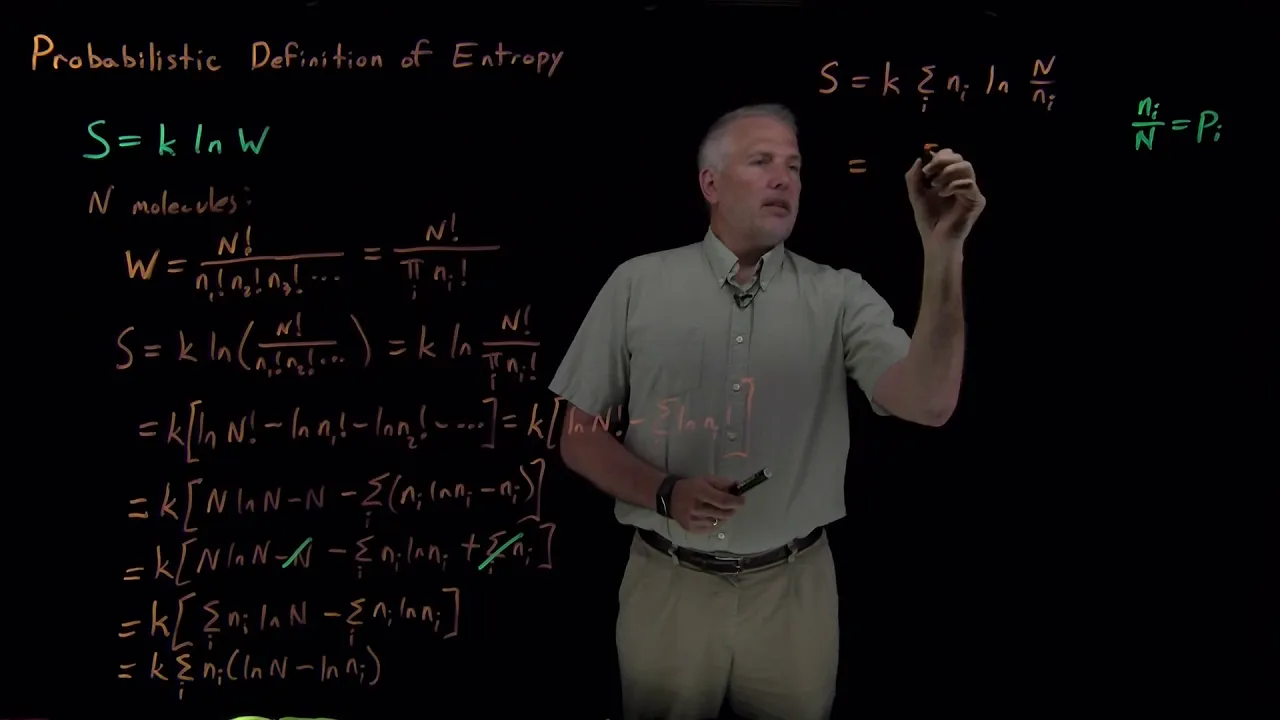 Probabilistic Definition of Entropy
S = k ln W
N molecules:
W = N! / (n₁! n₂! n₃! ⋯) = N! / (∏ᵢ nᵢ!)
S = k ln(N! / (n₁! n₂! ⋯)) = k ln N! / (∏ᵢ nᵢ!)
= k[ln N! − ln n₁! − ln n₂! − ⋯] = k[ln N! − Σᵢ ln nᵢ!]
= k[N ln N − N − Σᵢ (nᵢ ln nᵢ − nᵢ)]
= k[N ln N − N − Σᵢ nᵢ ln nᵢ + Σᵢ nᵢ]
= k[Σᵢ nᵢ ln N − Σᵢ nᵢ ln nᵢ]
= k Σᵢ nᵢ (ln N − ln nᵢ)
S = k Σᵢ nᵢ ln N/nᵢ
=
nᵢ/N = Pᵢ